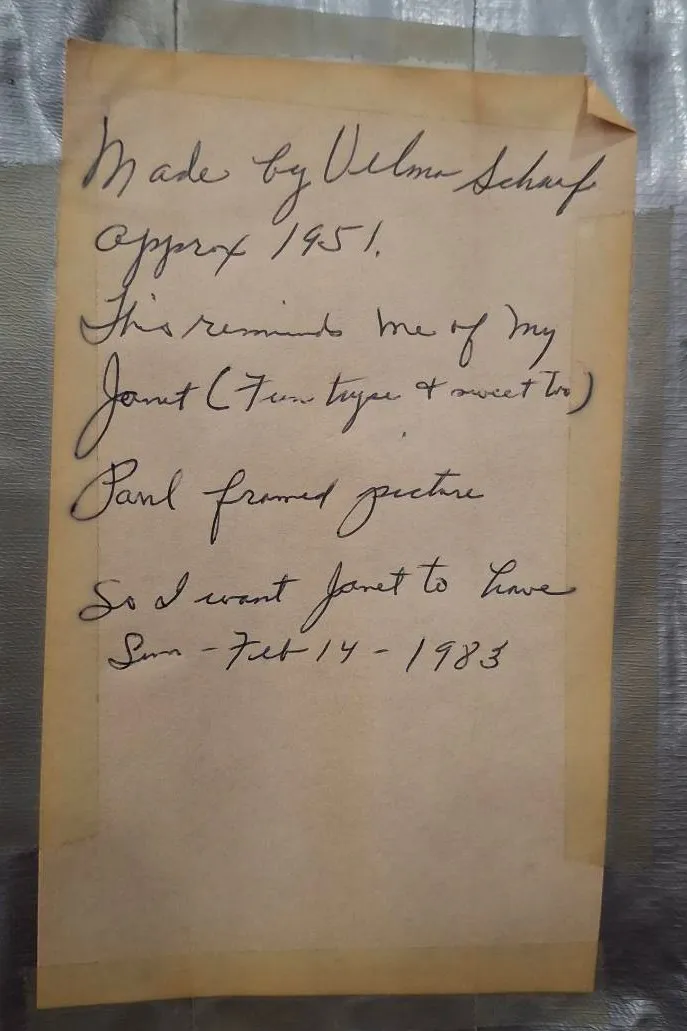 Made by Velma Scharf
approx 1951.
This reminds me of My
Janet (Fun type & sweet too)
Paul framed picture
So I want Janet to have
Sun - Feb 14 - 1983